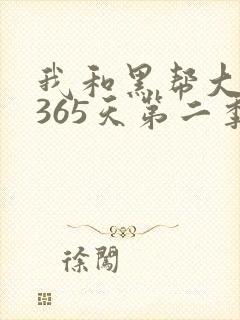 我和黑帮大
365天第二季
徐闖